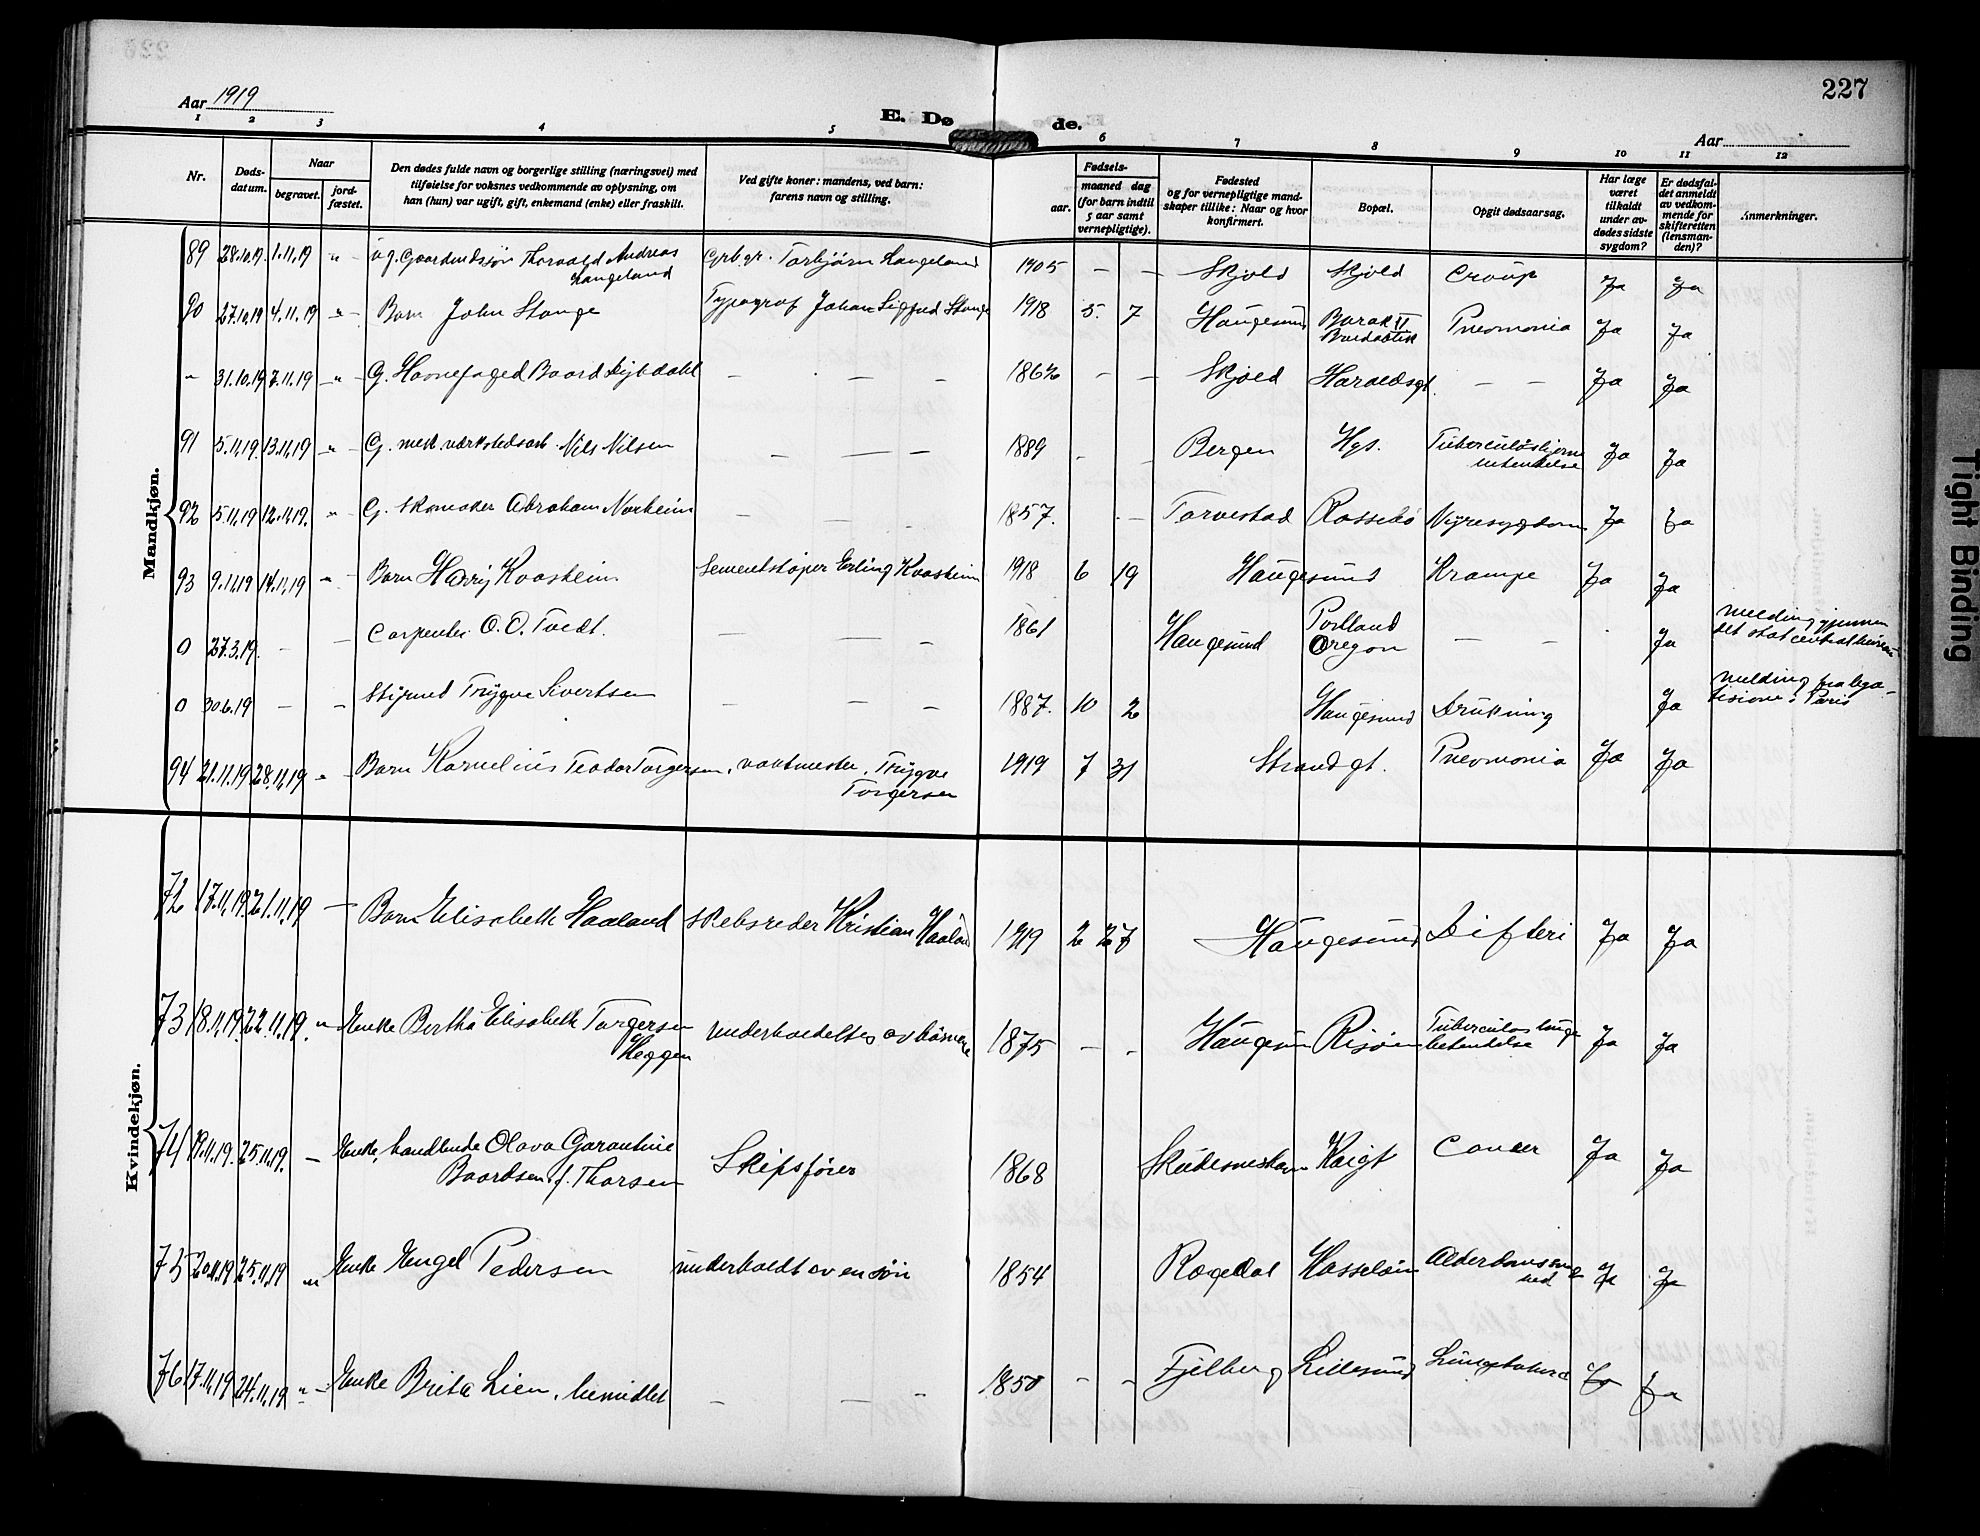 227
Aar 1919
E. Dø
de.
Aar
1 2 3 4 5 6 7 8 9 10 11 12
Nr.
Døds-
datum.
Naar
begravet.
jord-
fæstet.
Den dødes fulde navn og borgerlige stilling (næringsvei) med
tilføielse for voksnes vedkommende av oplysning, om
han (hun) var ugift, gift, enkemand (enke) eller fraskilt.
Ved gifte koner: mandens, ved barn:
farens navn og stilling.
Fødsels-
aar.
maaned dag
(for barn indtil
5 aar samt
vernepligtige).
Fødested
og for vernepligtige mand-
skaper tillike: Naar og hvor
konfirmert.
Bopæl.
Opgit dødsaarsag.
Har læge
været
tilkaldt
under av-
dødes sidste
sygdom?
Er dødsfal-
det anmeldt
av vedkom-
mende for
skifteretten
(lensman-
den)?
Anmerkninger.
Mandkjøn.
89 28.10.19. 1.11.19 " - ug. Gaardmdssøn Thorvald Andreas Langeland Grbgr. Torbjørn Langeland 1905 — — Skjold Skjold Croup Ja Ja
90 27.10.19 4.11.19 " - Barn John Stange Typograf Johan Sigfred Stange 1918 5. 7 Haugesund Barak II Pneomonia Ja Ja
" 31.10.19 7.11.19 - " - G. Havnefoged Baard Dybdahl — — — 1862 — — Skjold Haraldsgt. — — Ja Ja
91 5.11.19. 13.11.19 - " - G. mek. værkstedsarb. Nils Nilsen — — — 1889 - - Bergen Hgs. Tuberculøs hjerne
betendelse Ja Ja
92 5.11.19 12.11.19. " - G. Skomaker Abraham Norheim — — - 1857. - - Torvestad Rossebø Nyresygdom Ja Ja
93 9.11.19 14.11.19 " - Barn Harry Kvasheim Sementstøper Erling Kvasheim 1918 6 19 Haugesund Krampe Ja Ja
0 27.3.19. - — Carpenter O. O. Tvedt. — — - 1861 Haugesund Portland
Oregon — — Ja Melding gjennem
det stat.centralbureau
0 30.6.19 — — - Styrmd Trygve Sivertsen — — — 1887. 10 2 Haugesund Drukning Ja Melding fra lega-
tionen i Paris
94 21.11.19 28.11.19 " - Barn Kornelius Teodor Torgersen, vaktmester, Trygve
Torgersen 1919 7 31 Strandgt. Pneomonia Ja Ja
Kvindekjøn.
72 17.11.19. 21.11.19 — Barn Elisabeth Haaland Skibsreder Kristian Haaland 1919 2 27 Haugesund Difteri Ja Ja
73 18.11.19. 22.11.19. " Enke Bertha Elisabeth Torgersen
Heggen underholdeltes av børnene 1875 — - Haugesun Risøen Tuberculøs lunge
betendelse Ja Ja
74 19.11.19. 25.11.19. — Enke, handlende Olava Garantine
Baardsen f. Thorsen Skipsfører 1868 Skudesneshavn Kaigt Cancer Ja Ja
75 20.11.19 25.11.19 " Enke Engel Pedersen underholdt av en søn 1854 Røgedal Hasseløen Alderdoms Ja Ja
76 17.11.19 24.11.19 " - Enke Brita Lien, bemidlet — — — 1850 - - Fjelberg Lillesund Ja Ja
Tight Binding